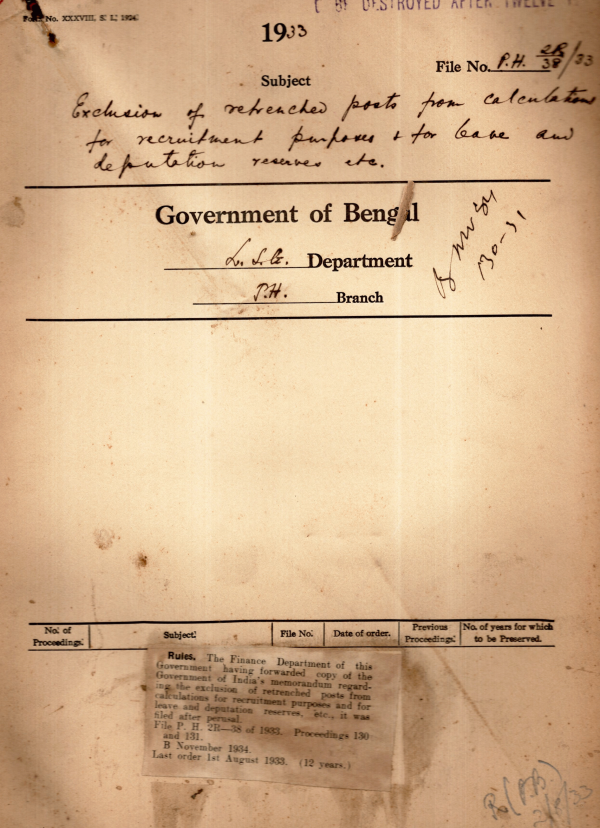 BE DESTROYED AFTER TWELVE
Form No. XXXVIII, S. L. 1926.
1933
File No. P.H. 2R/38/33
Subject
Exclusion of retrenched posts from calculations
for recruitment purposes & for leave and
deputation reserves etc.
Government of Bengal
L. S. G. Department
P.H. Branch
B Nov 34
130-31
No. of Proceedings.
Subject.
File No.
Date of order.
Previous Proceedings.
No. of years for which to be Preserved.
Rules. The Finance Department of this
Government having forwarded copy of the
Government of India's memorandum regard-
ing the exclusion of retrenched posts from
calculations for recruitment purposes and for
leave and deputation reserves, etc., it was
filed after perusal.
File P. H. 2R—38 of 1933. Proceedings 130
and 131.
B November 1934.
Last order 1st August 1933. (12 years.)